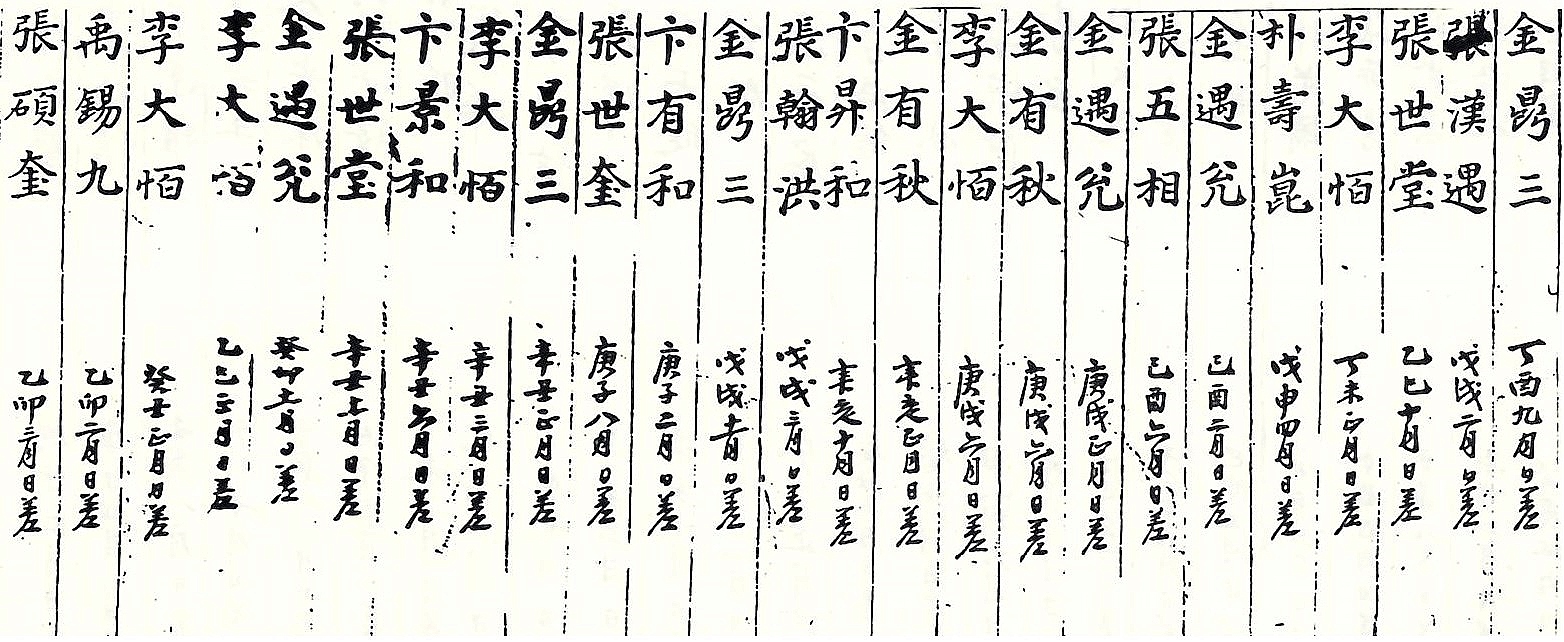 金昴三 丁酉九月日差
張漢遇 戊戌二月日差
張世堂 乙巳十月日差
李大恒 丁未正月日差
朴壽崑 戊申四月日差
金遇兊 己酉二月日差
張五相 己酉六月日差
金遇兊 庚戌正月日差
金有秋 庚戌六月日差
李大恒 庚戌六月日差
金有秋 辛亥正月日差
卞昇和 辛亥十月日差
張翰洪 戊戌三月日差
金昴三 戊戌十一月日差
卞有和 庚子二月日差
張世奎 庚子八月日差
金昴三 辛丑正月日差
李大恒 辛丑三月日差
卞景和 辛丑六月日差
張世堂 辛丑七月日差
金遇兊 癸卯十一月日差
李大恒 乙巳正月日差
李大恒 癸丑正月日差
禹錫九 乙卯二月日差
張碩奎 乙卯三月日差